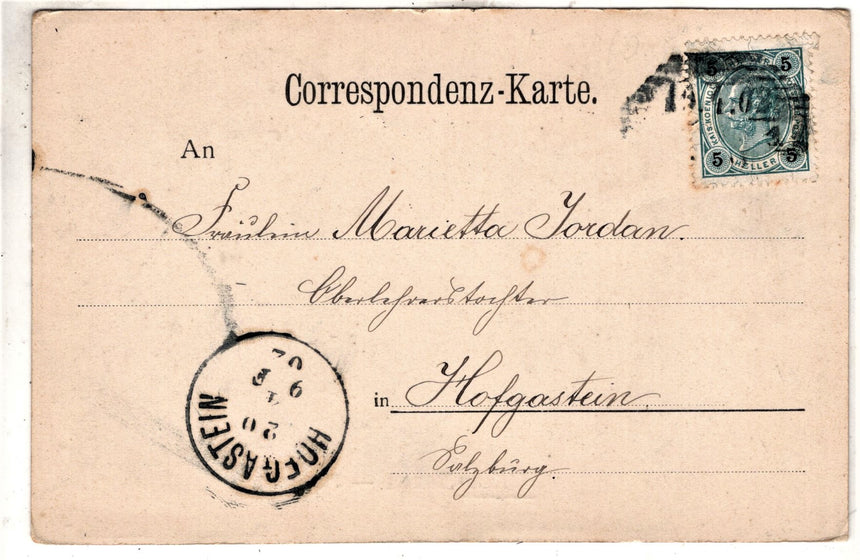 Correspondenz-Karte.
5 5
KAIS. KOENIGL.
5 HELLER 5
An
Fräulein Marietta Jordan.
Oberlehrerstochter
in Hofgastein
Salzburg.
HOFGASTEIN
20
9
02